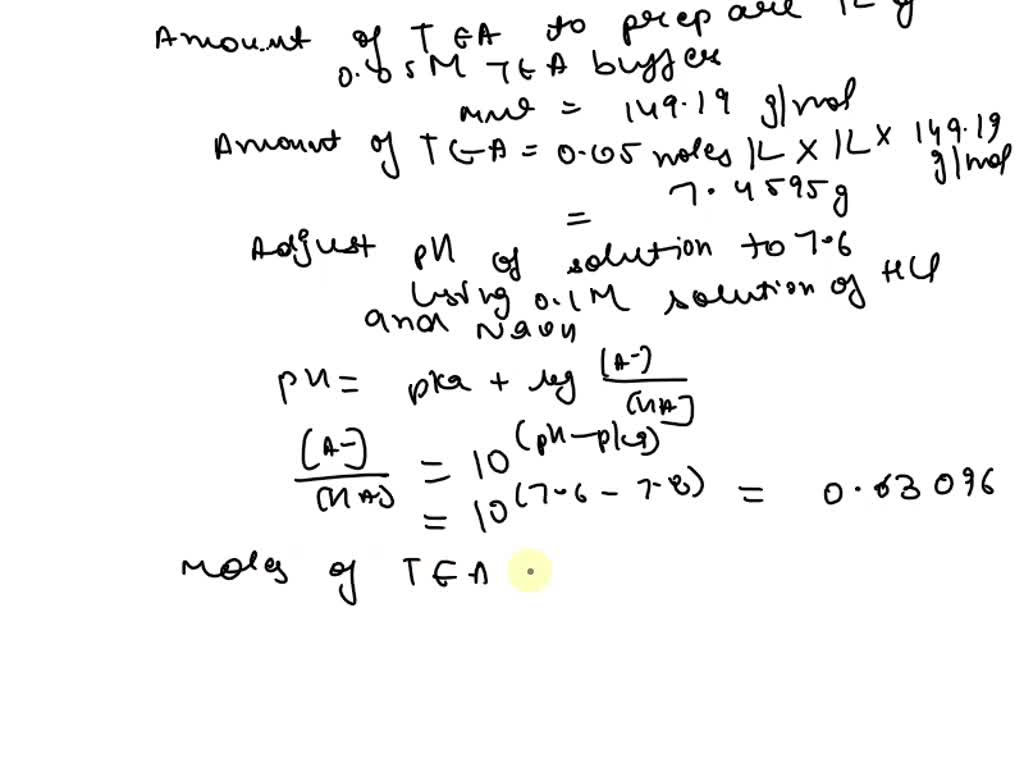 Amount of TEA to prepare 1L of
0.05M TEA buffer
mwt = 149.19 g/mol
Amount of TEA = 0.05 moles/L × 1L × 149.19 g/mol
= 7.4595g
Adjust pH of solution to 7.6
using 0.1M solution of HCl
and NaOH
pH = pKa + log [A-]/[HA]
[A-]/[HA] = 10^(pH-pKa)
= 10^(7.6-7.8) = 0.63096
Moles of TEA